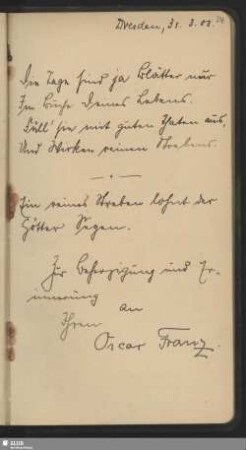 Dresden, 31. 3. 02.
Die Tage sind ja Blätter nur
Im Buche Deines Lebens.
Füll' sie mit guten Thaten aus,
Und Werken reinen Strebens.
Ein reines Streben lohnt der
Götter Segen.
Zur Beherzigung und Er-
innerung
an
Ihren
Oscar Franz.
SLUB